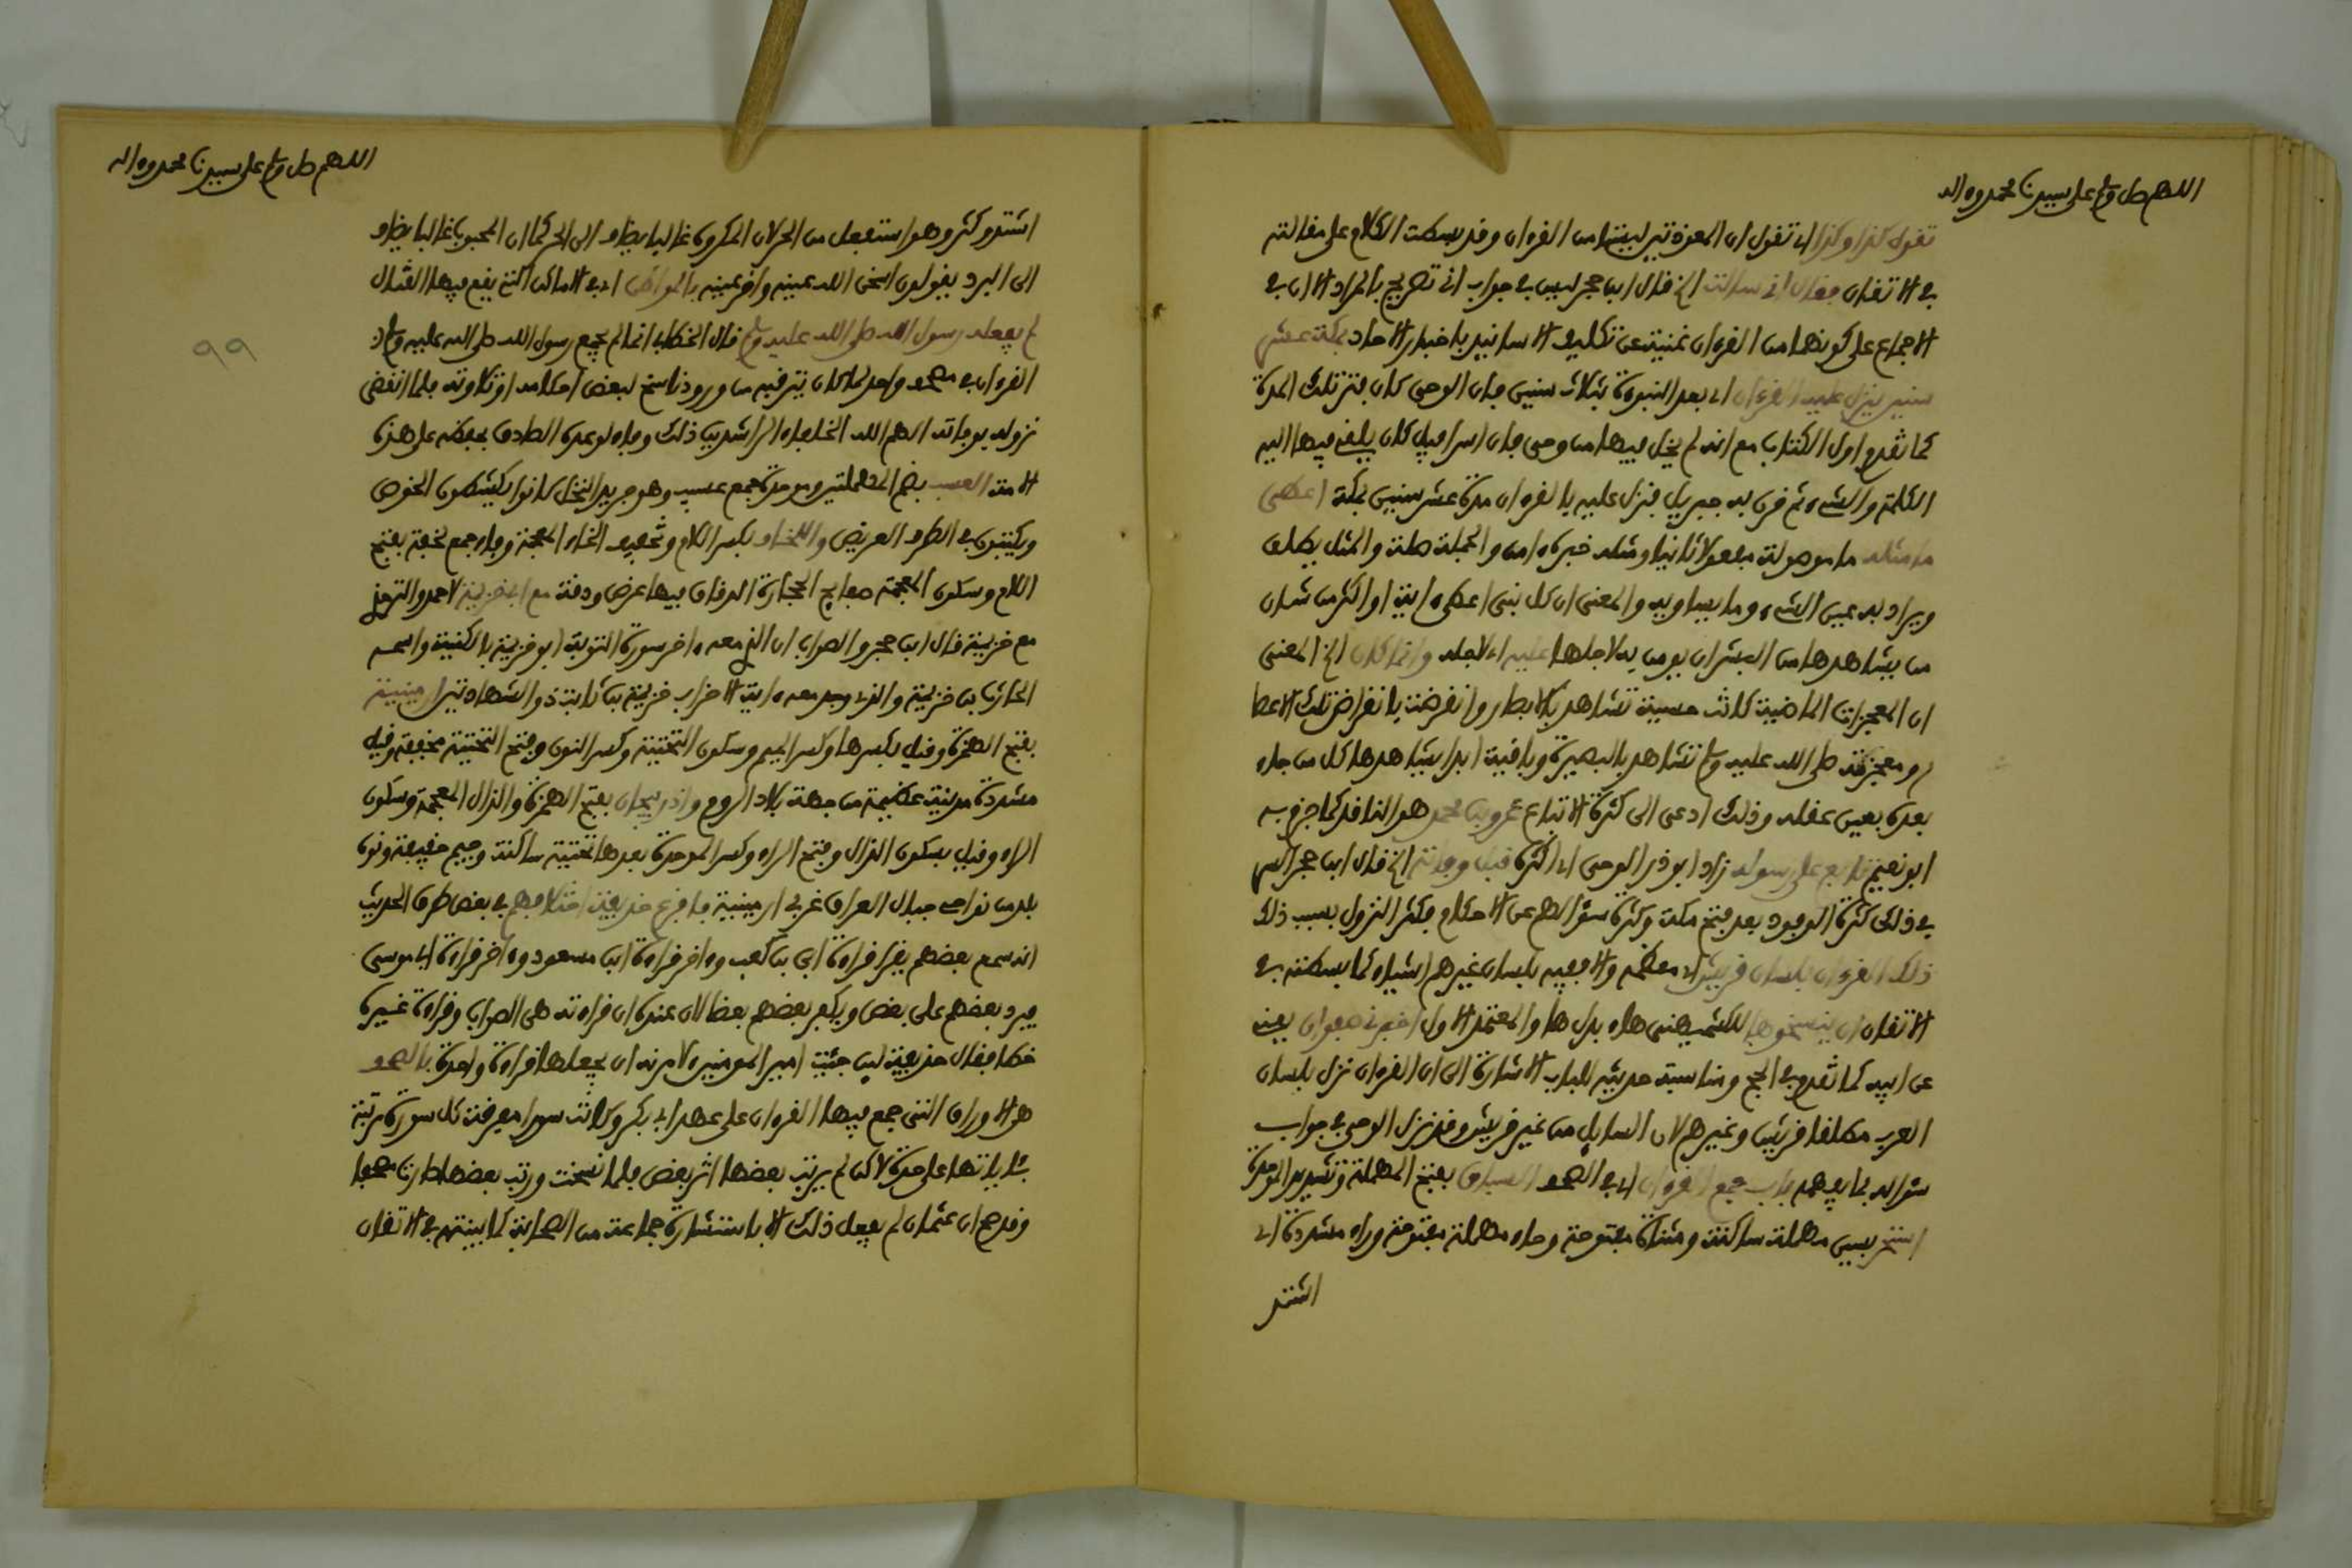 اللهم صل وسلم على سيدنا محمد وءاله
تقول كذا وكذا اي تقول ان المعوذتين ليستا من القرءان وقد بسطت الكلام على مقالته
في الاتقان فقال اني سالت الخ قال ابن حجر ليس في جواب ابي تصريح بالمراد الا ان في
الاجماع على كونهما من القرءان غنية عن تكلف الاسانيد باخبار الاحاد بمكة عشر
سنين ينزل عليه القرءان اي بعد النبوة بثلاث سنين فان الوحي كان فتر تلك المدة
كما تقدم اول الكتاب مع انه لم يخل فيها من وحي فان اسرافيل كان يلقي فيها اليه
الكلمة والشيء ثم قرن به جبريل فنزل عليه بالقرءان مدة عشر سنين بمكة اعطي
ما مثله ما موصولة مفعولا ثانيا ومثله خبره ءامن والجملة صلة والمثل يطلق
ويراد به عين الشيء وما يساويه والمعنى ان كل نبي اعطي ءاية او اكثر من شان
من يشاهدها من البشر ان يومن به لاجلها عليه اي لاجله وانما كان الخ المعنى
ان المعجزات الماضية كانت حسية تشاهد بالابصار وانقرضت بانقراض تلك الاعصا
ر ومعجزته صلى الله عليه وسلم تشاهد بالبصيرة وباقية ابدا يشاهدها كل من جاء
بعده بعين عقله وذلك ادعى الى كثرة الاتباع عمرو بن محمد هو الناقد كما جزم به
ابو نعيم تابع على رسوله زاد ابو ذر الوحي اي اكثره قبل وفاته الخ قال ابن حجر السر
في ذلك كثرة الوفود بعد فتح مكة وكثرة سؤالهم عن الاحكام فكثر النزول بسبب ذلك
ذلك القرءان بلسان قريش اي معظمه والا ففيه بلسان غيرهم اشياء كما بسطته في
الاتقان ان ينسخوها للكشميهني هاء بدل ها والمعتمد الاول اخبرني صفوان يعني
عن ابيه كما تقدم في الحج ومناسبة حديثه للباب الاشارة الى ان القرءان نزل بلسان
العرب مطلقا قريش وغيرهم لان السايل من غير قريش وقد نزل الوحي في جواب
سؤاله بما يفهمه باب جمع القرءان اي في الصحف السباق بفتح المهملة وتشديد الموحدة
استحر بسين مهملة ساكنة ومثناة مفتوحة وحاء مهملة مفتوحة وراء مشددة اي
اشتد
اللهم صل وسلم على سيدنا محمد وءاله
اشتد وكثر وهو استفعل من الحر لان المكروه غالبا يضاف الى الحر كما ان المحبوب غالبا يضاف
الى البرد يقولون اسخن الله عينه واقر عينه بالمواطن اي في الاماكن التي يقع فيها القتال
لم يفعله رسول الله صلى الله عليه وسلم قال الخطابي انما لم يجمع رسول الله صلى الله عليه وسلم
القرءان في مصحف واحد لما كان يترقبه من ورود ناسخ لبعض احكامه او تلاوته فلما انقضى
نزوله بوفاته الهم الله الخلفاء الراشدين ذلك وفاء لوعده الصادق بحفظه على هذه
الامة العسب بضم المهملتين وموحدة جمع عسيب وهو جريد النخل كانوا يكشطون الخوص
ويكتبون في الطرف العريض واللخاف بكسر اللام وتخفيف الخاء المعجمة وفاء جمع لخفة بفتح
اللام وسكون المعجمة صفايح الحجارة الرقاق فيها عرض ودقة مع ابي خزيمة لاحمد والترمذي
مع خزيمة قال ابن حجر والصواب ان الذي معه ءاخر سورة التوبة ابو خزيمة بالكنية واسمه
الحارث بن خزيمة والذي وجد معه ءاية الاحزاب خزيمة بن ثابت ذو الشهادتين ارمينية
بفتح الهمزة وقيل بكسرها وكسر الميم وسكون التحتية وكسر النون وفتح التحتية مخففة وقيل
مشددة مدينة عظيمة من جهة بلاد الروم واذربيجان بفتح الهمزة والذال المعجمة وسكون
الراء وقيل بسكون الذال وفتح الراء وكسر الموحدة بعدها تحتية ساكنة وجيم خفيفة ونون
بلد من نواحي جبال العراق غربي ارمينية فافزع حذيفة اختلافهم في بعض طرق الحديث
انه سمع بعضهم يقرا قراءة ابي بن كعب وءاخر قراءة ابن مسعود وءاخر قراءة ابي موسى
فيرد بعضهم على بعض ويكفر بعضهم بعضا لان عنده ان قراءته هي الصواب وقراءة غيره
خطا فقال حذيفة لين جئت امير المومنين لامرنه ان يجعلها قراءة واحدة بالصحف
هي الاوراق التي جمع فيها القرءان على عهد ابي بكر وكانت سورا مفرقة كل سورة مرتبة
بئاياتها على حدة لاكن لم يرتب بعضها اثر بعض فلما نسخت ورتب بعضها صارت مصحفا
وقد صح ان عثمان لم يفعل ذلك الا باستشارة جماعة من الصحابة كما بينته في الاتقان
99